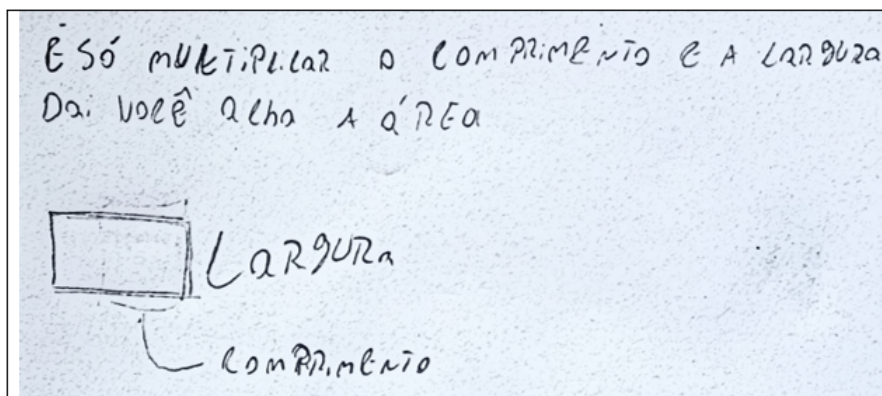 É SÓ MULTIPLICAR O COMPRIMENTO E A LARGURA
DAI VOCÊ ACHA A ÁREA
LARGURA
COMPRIMENTO